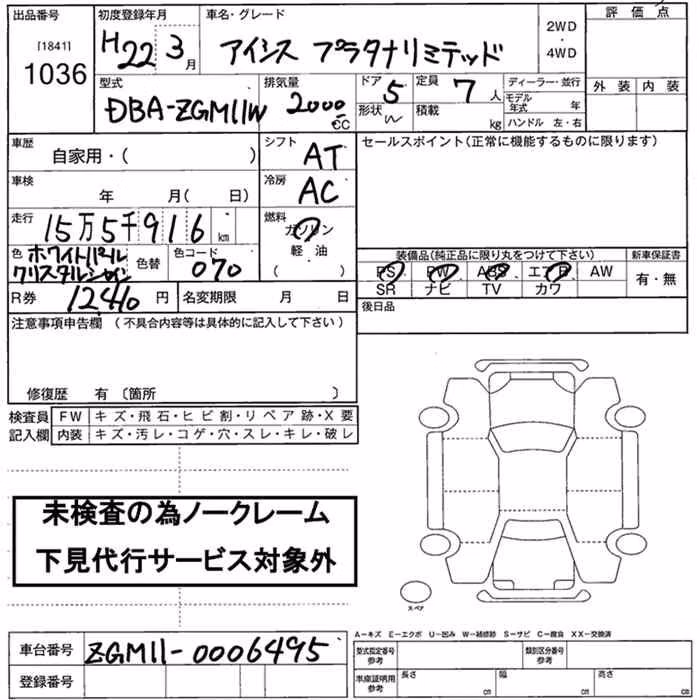 出品番号 初度登録年月 車名・グレード 評価点
[1841] H22 3月 アイシス プラタナリミテッド 2WD・4WD
1036 外装 内装
型式 排気量 ドア 5 定員 7人 ディーラー・並行
DBA-ZGM11W 2000cc 形状 W 積載 kg モデル年式 年
ハンドル 左・右
車歴 シフト セールスポイント(正常に機能するものに限ります)
自家用・( ) AT
車検 年 月( 日) 冷房 AC
走行 15万5千916km 燃料
ガソリン
軽・油
( )
色 ホワイトパール 色替 色コード 装備品(純正品に限り丸をつけて下さい) 新車保証書
クリスタルシャイン 070 PS PW ABS エアB AW 有・無
R券 12410円 名変期限 月 日 SR ナビ TV カワ
注意事項申告欄 (不具合内容等は具体的に記入して下さい) 後日品
修復歴 有 〔箇所 〕
検査員 FW キズ・飛石・ヒビ割・リペア跡・X要
記入欄 内装 キズ・汚レ・コゲ・穴・スレ・キレ・破レ
未検査の為ノークレーム
下見代行サービス対象外
スペア
A-キズ E-エクボ U-凹み W-補修跡 S-サビ C-腐食 XX-交換済
車台番号 ZGM11-0006495 型式指定番号 参考 類別区分番号 参考
登録番号 車庫証明用 参考 長さ cm 幅 cm 高さ cm